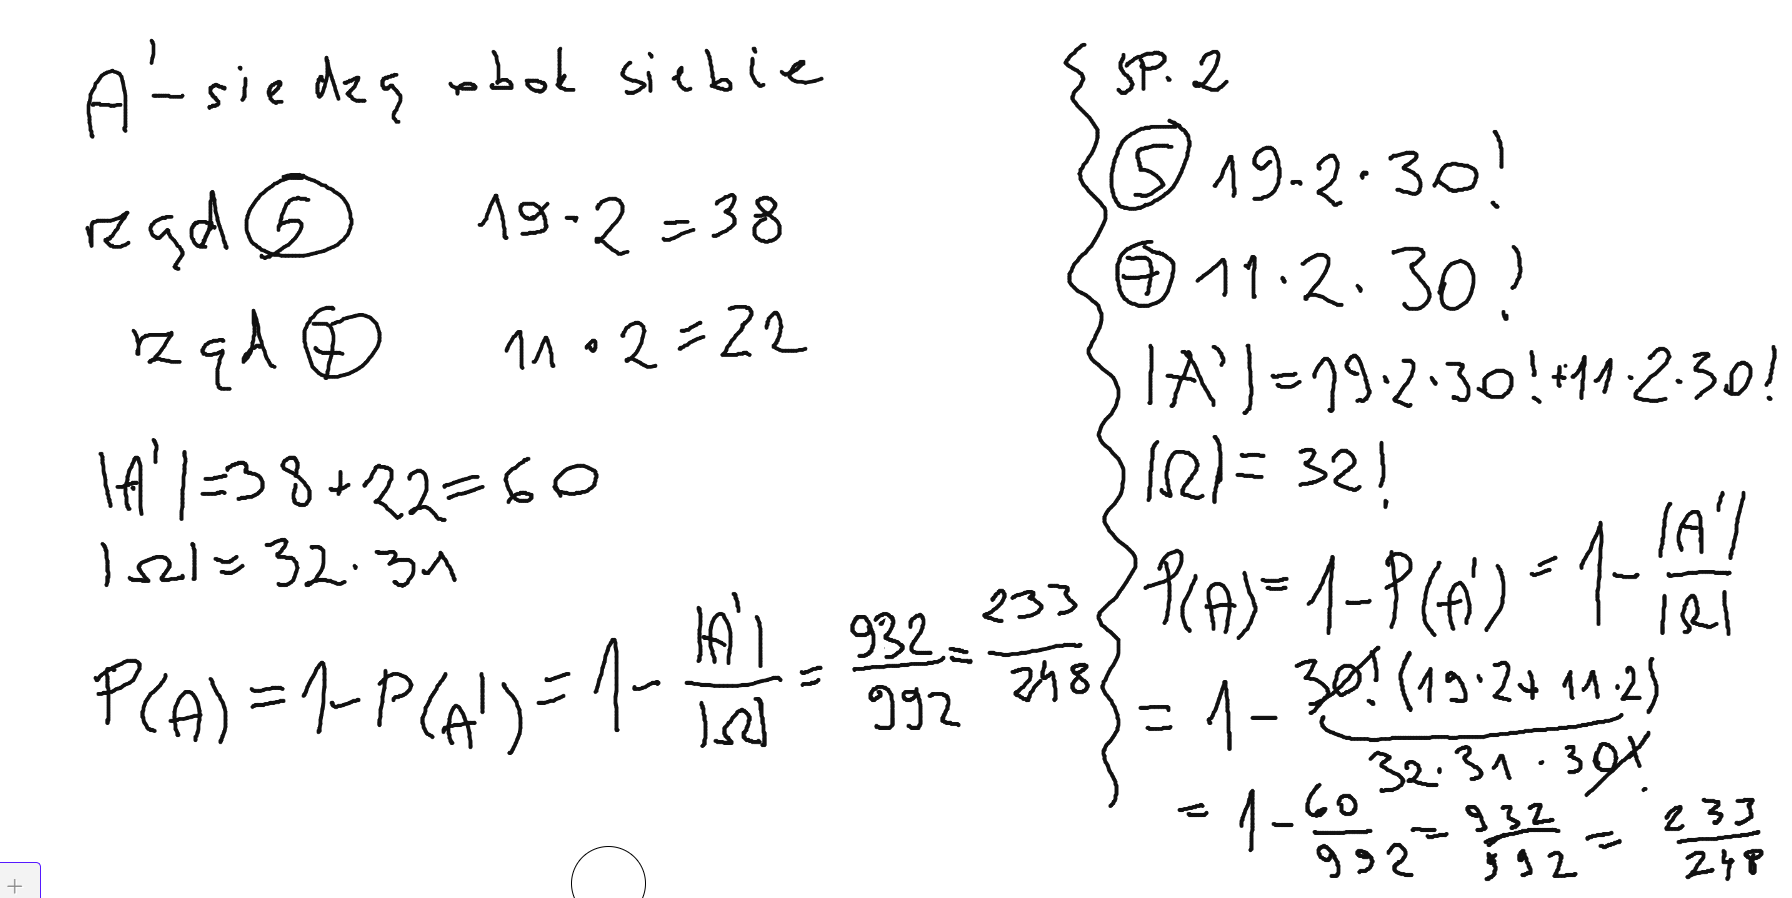 A' - siedzą obok siebie
rząd 5 19 · 2 = 38
rząd 7 11 · 2 = 22
|A'| = 38 + 22 = 60
|Ω| = 32 · 31
P(A) = 1 - P(A') = 1 - |A'| / |Ω| = 932 / 992 = 233 / 248
SP. 2
5 19 · 2 · 30!
7 11 · 2 · 30!
|A'| = 19 · 2 · 30! + 11 · 2 · 30!
|Ω| = 32!
P(A) = 1 - P(A') = 1 - |A'| / |Ω|
= 1 - 30! (19 · 2 + 11 · 2) / 32 · 31 · 30!
= 1 - 60 / 992 = 932 / 992 = 233 / 248